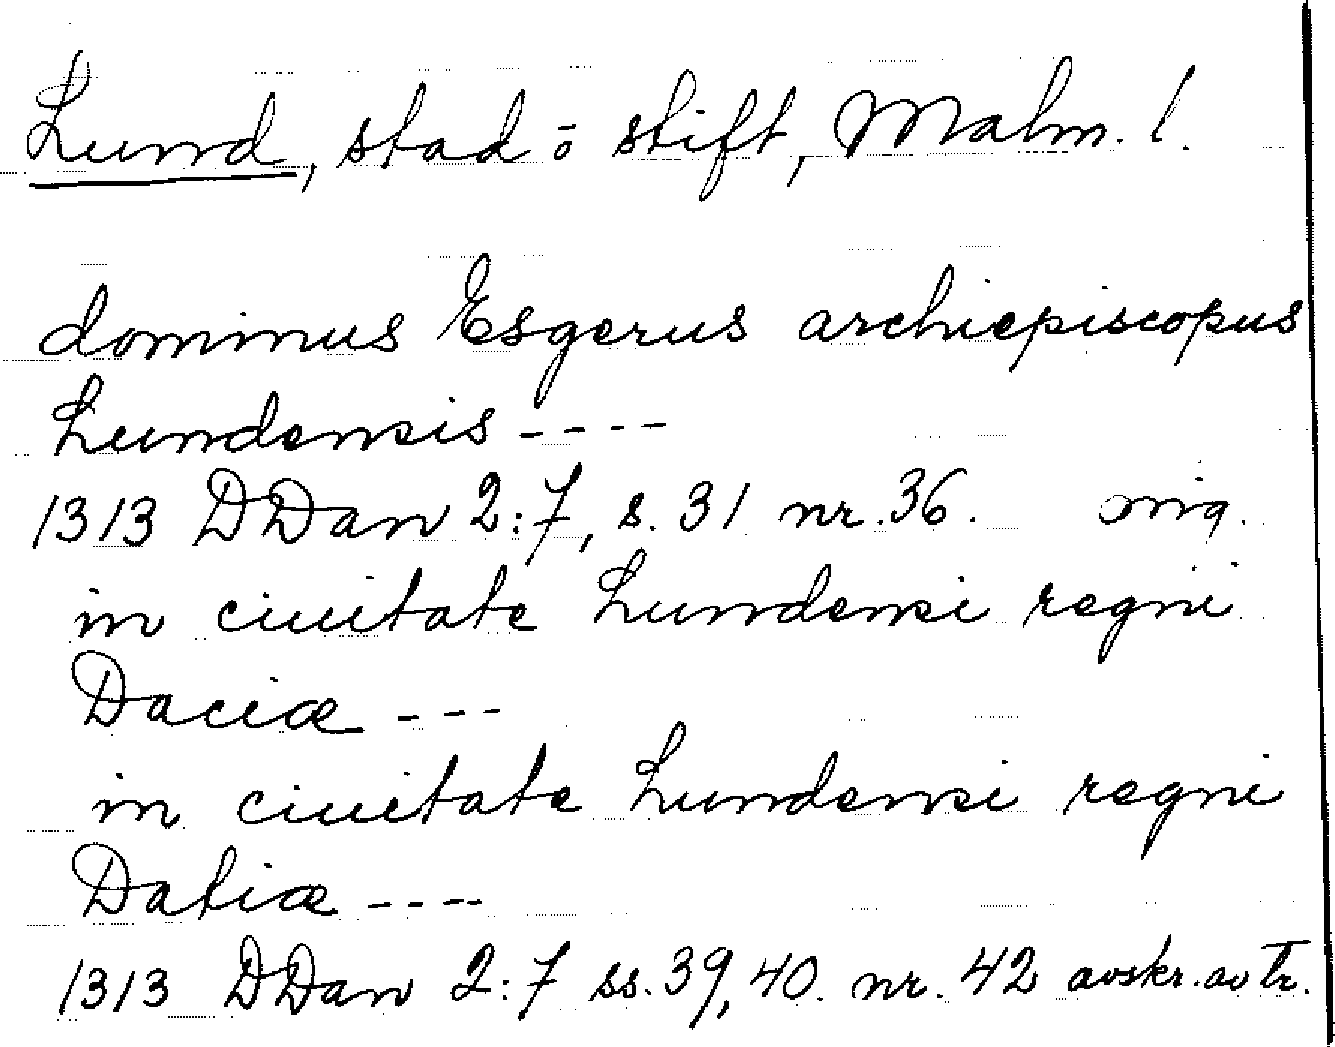 Lund, stad o stift, Malm. l.
dominus Esgerus archiepiscopus
Lundensis ----
1313 DDan 2:7, s. 31 nr. 36. orig.
in ciuitate Lundensi regni
Daciæ ---
in ciuitate Lundensi regni
Datiæ ----
1313 DDan 2:7 ss. 39, 40. nr. 42 avskr. av Tr.